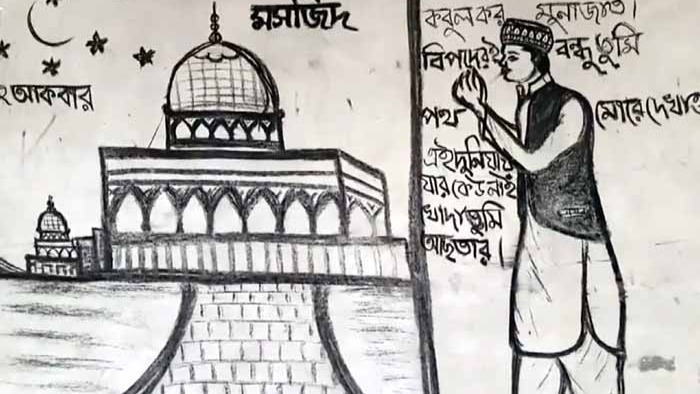 মসজিদ
আকবার
কবুল কর মুনাজাত।
বিপদেরই বন্ধু তুমি
পথ মোরে দেখাও
এই দুনিয়ায়
যার কেউ নাই
খোদা তুমি
আছ তার।